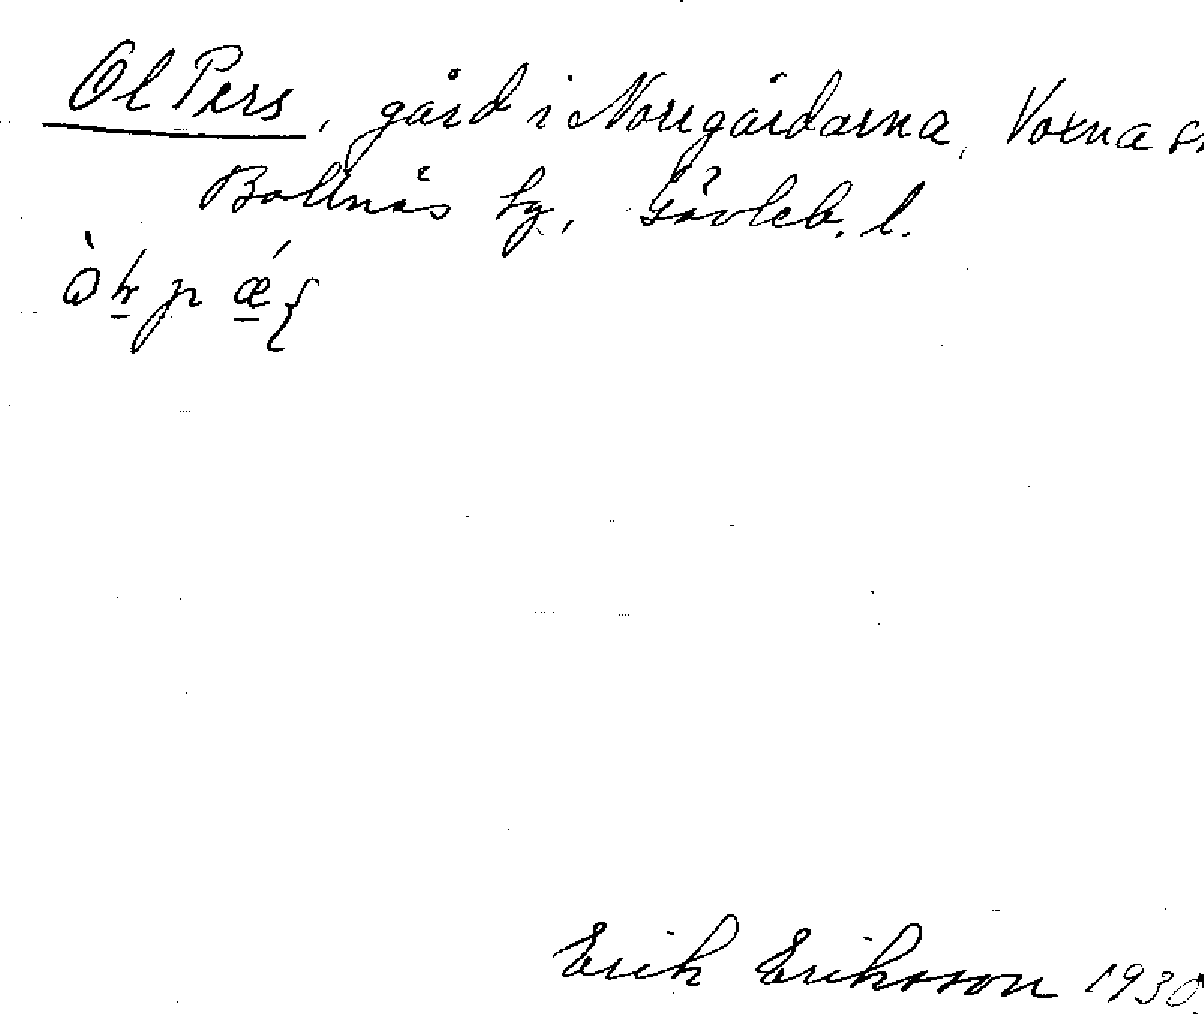 Ol Pers, gård i Norrgårdarna, Voxna
Bollnäs tg, Gävleb. l.
Erik Eriksson 1930